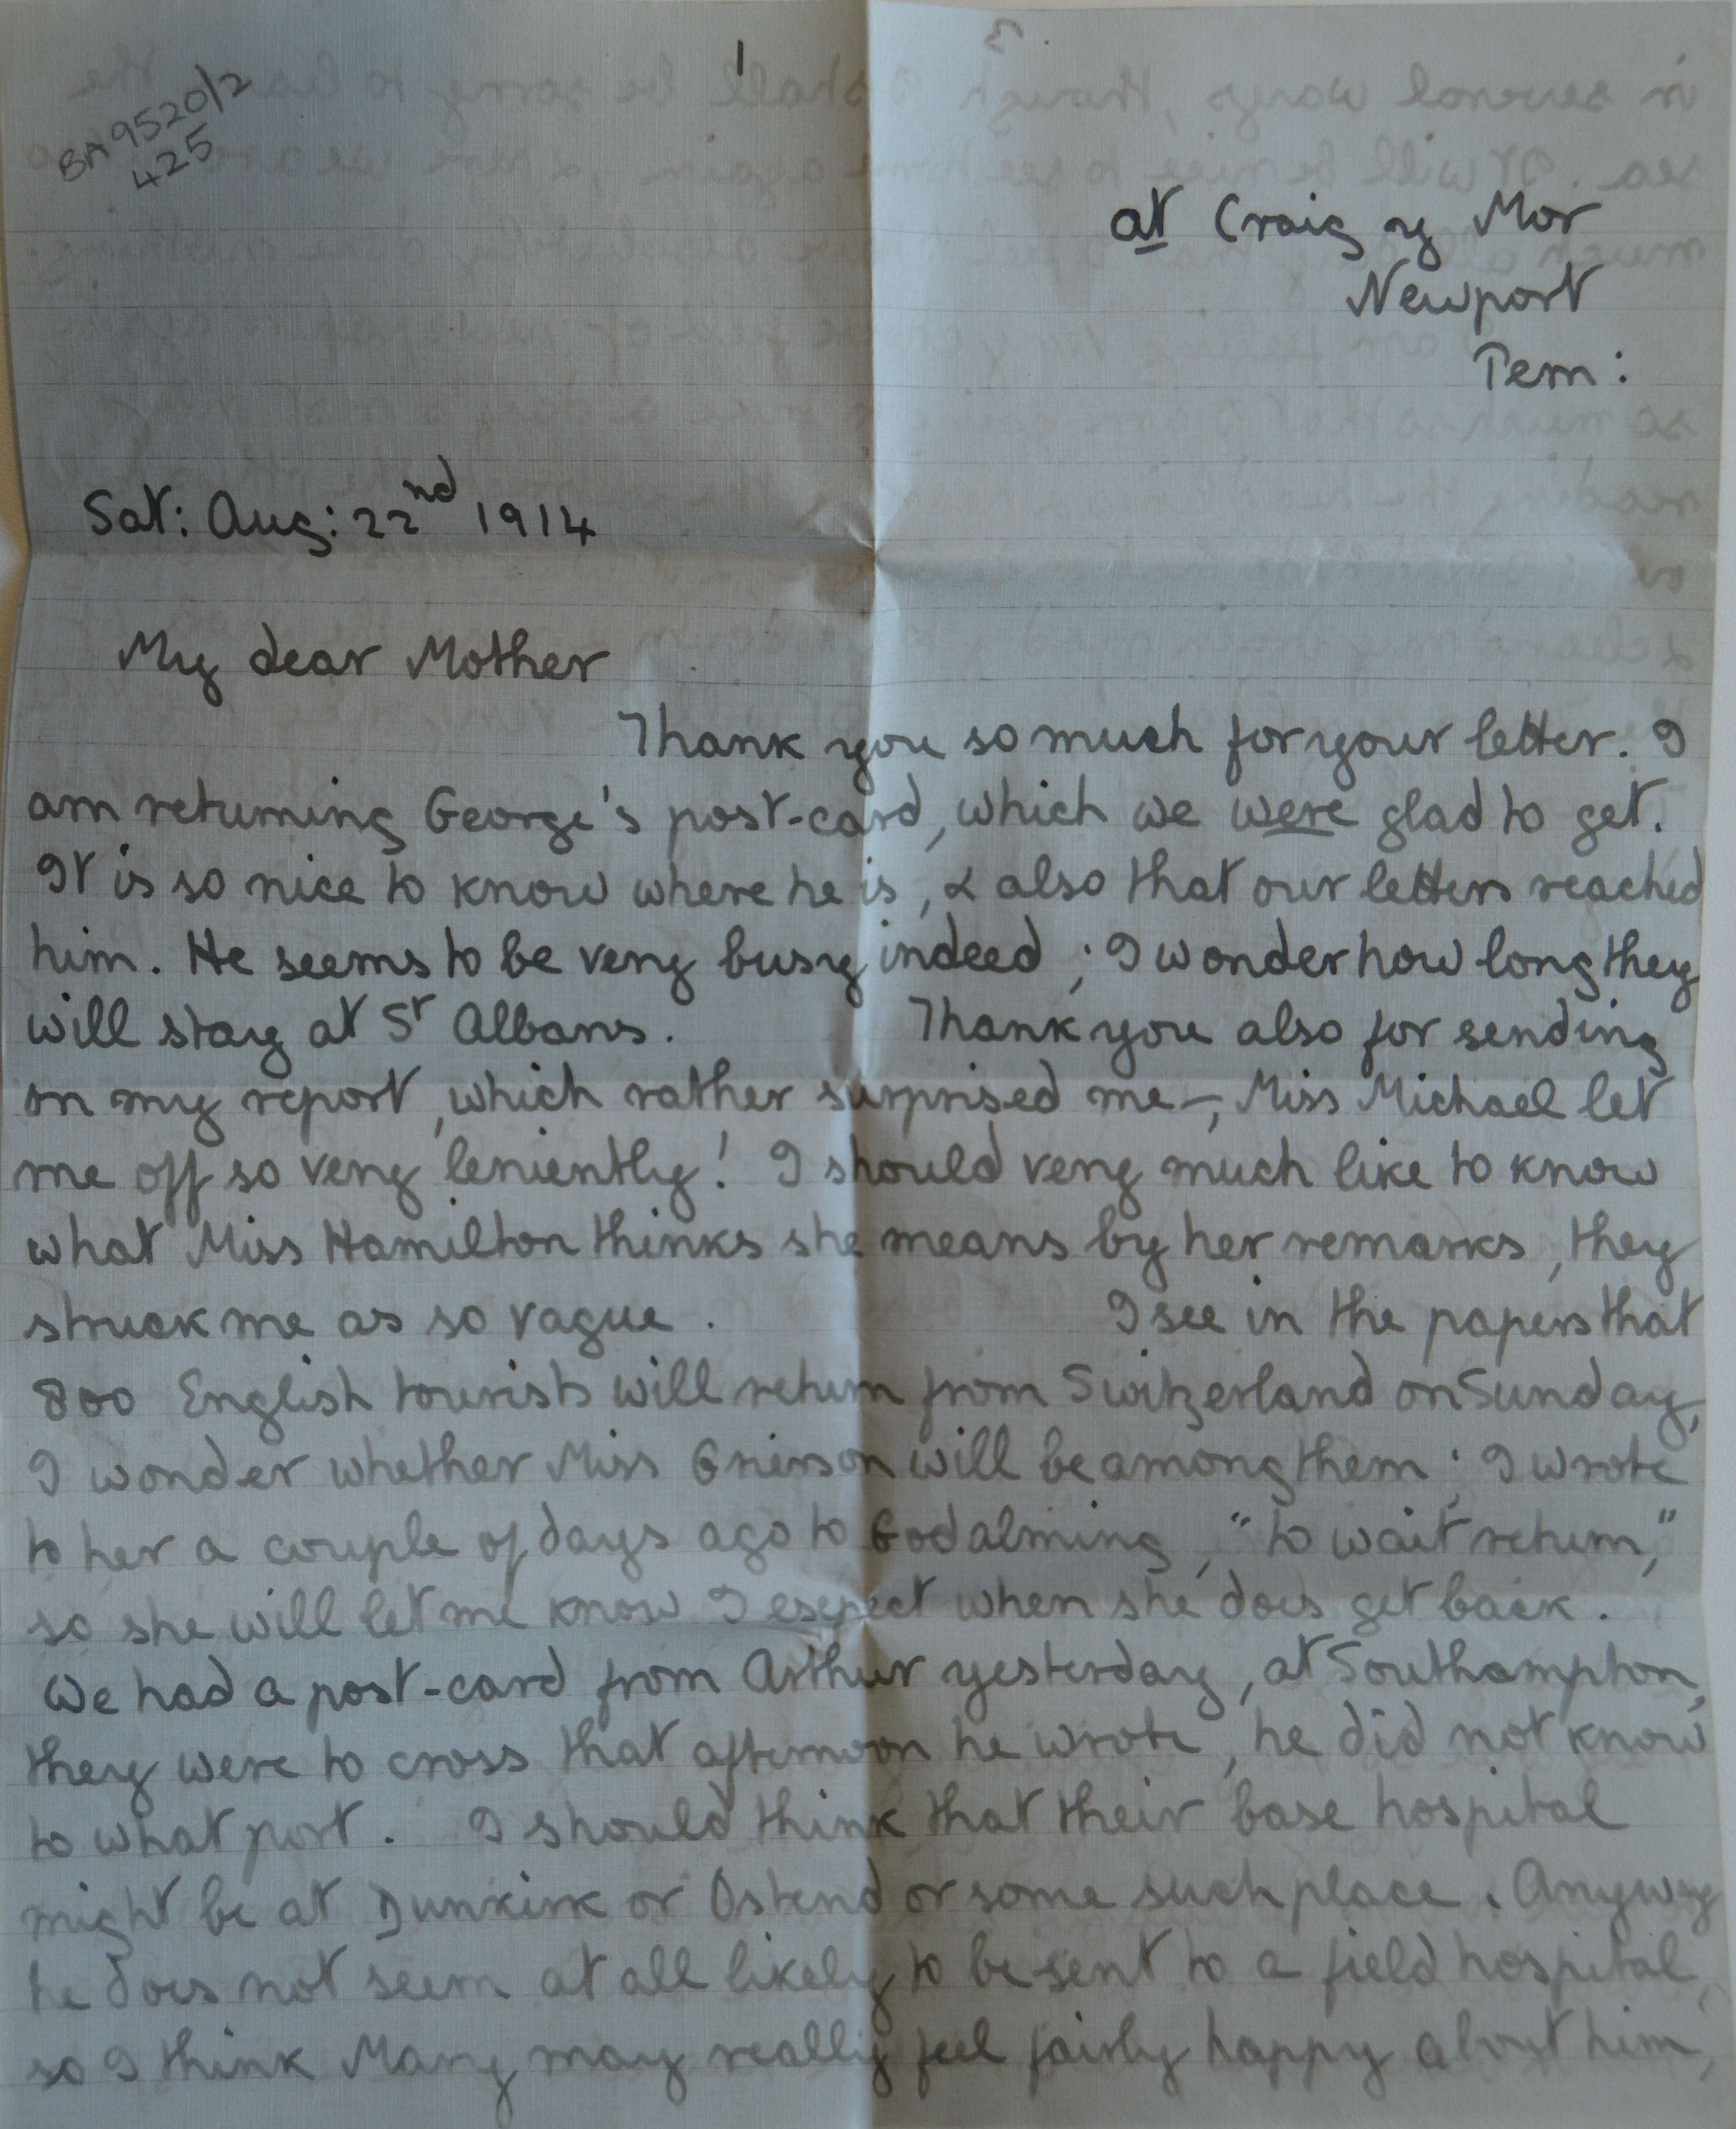 1
BA 9520/2
425
at Craig y Mor
Newport
Pem:
Sat: Aug: 22nd 1914
My dear Mother
Thank you so much for your letter. I
am returning George's post-card, which we were glad to get.
It is so nice to know where he is, & also that our letters reached
him. He seems to be very busy indeed; I wonder how long they
will stay at St Albans. Thank you also for sending
on my report, which rather surprised me-, Miss Michael let
me off so very leniently! I should very much like to know
what Miss Hamilton thinks she means by her remarks, they
struck me as so vague. I see in the papers that
800 English tourists will return from Switzerland on Sunday,
I wonder whether Miss Grierson will be among them; I wrote
to her a couple of days ago to Godalming, "to wait return,"
so she will let me know I expect when she does get back.
We had a post-card from Arthur yesterday, at Southampton,
they were to cross that afternoon he wrote, he did not know
to what port. I should think that their base hospital
might be at Dunkirk or Ostend or some such place. Anyway
he does not seem at all likely to be sent to a field hospital,
so I think Mary may really feel fairly happy about him,